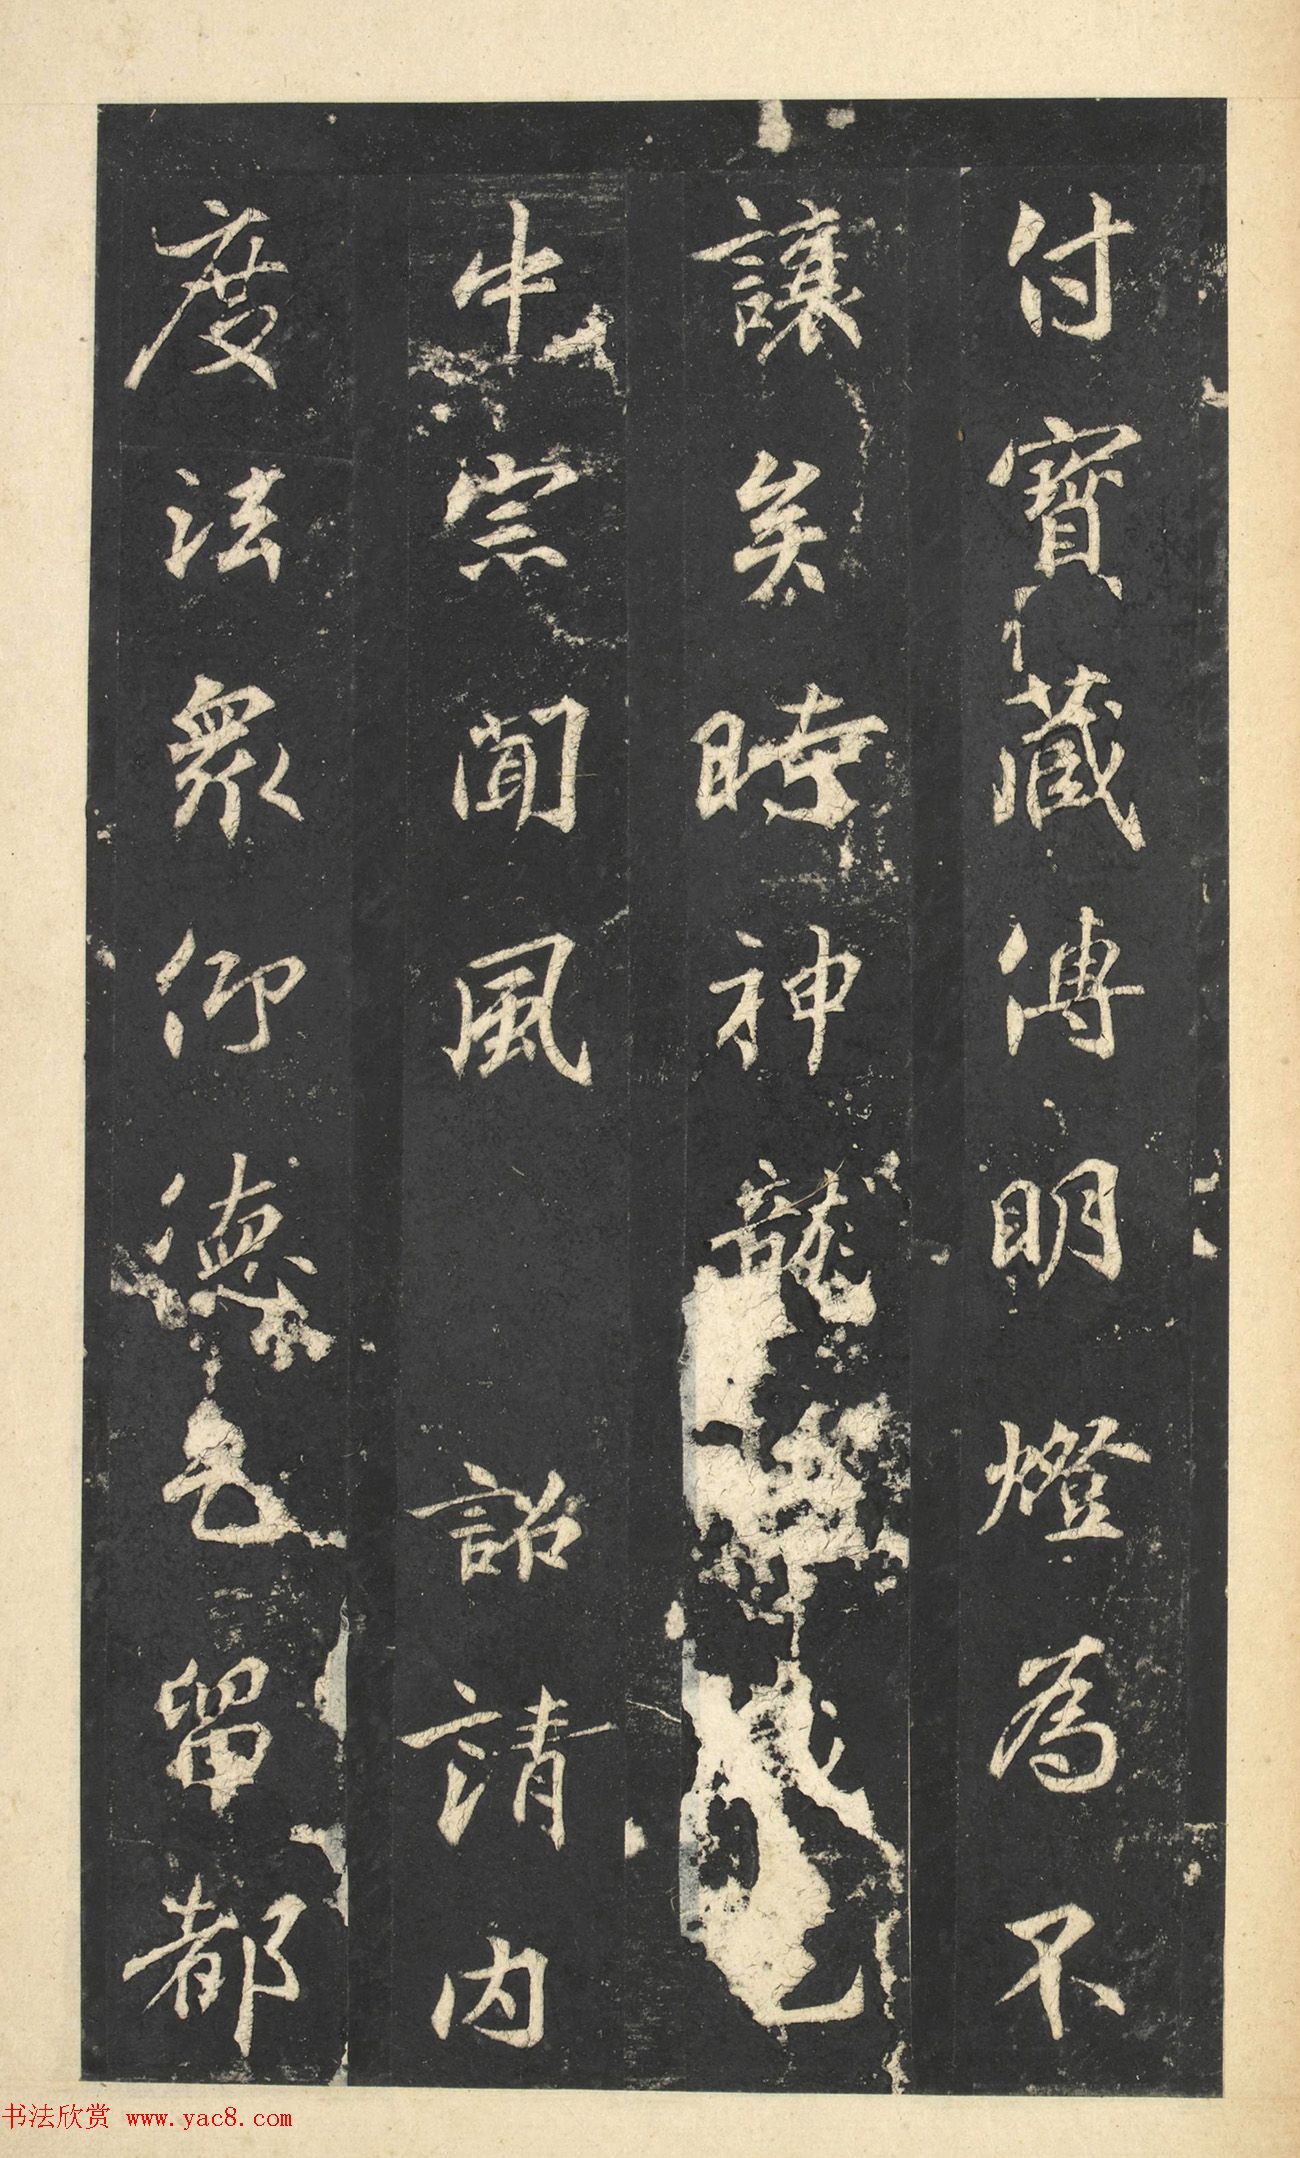 付寶藏傳明燈為不
讓矣時神龍
中宗聞風 詔請內
度法眾仰德乞留都
书法欣赏 www.yac8.com